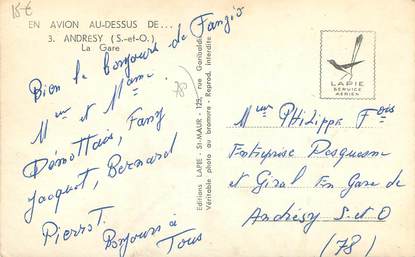 15€
EN AVION AU-DESSUS DE...
3. ANDRESY (S.-et-O.)
La Gare
Bien le bonjours de Fangio
Mur et Mame
Démottais, Fany
Jacquot, Bernard
Pierrot.
Bonjours à
Tous
78)
Editions LAPIE, St-MAUR - 125, rue Garibaldi
Véritable photo au bromure - Reprod. interdite
LAPIE
SERVICE
AERIEN
Mur PHiLippe Fois
Entreprise Desquesne
et Giral En Gare de
Andrésy S. et O
(78)